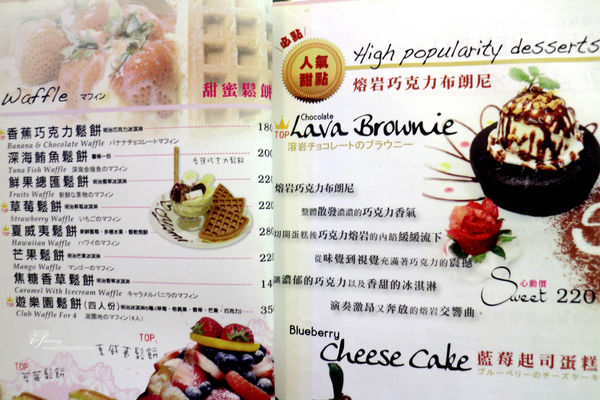 Waffle マフィン
甜蜜鬆餅
TOP 香蕉巧克力鬆餅 明治巧克力冰淇淋 180
Banana & Chocolate Waffle バナナチョコレートマフィン
深海鮪魚鬆餅 薯條一份 200
Tuna Fish Waffle 深海金槍魚のマフィン
鮮果總匯鬆餅 明治香草冰淇淋
Fruits Waffle 新鮮な果物のマフィン
草莓鬆餅 明治草莓冰淇淋 220
Strawberry Waffle いちごのマフィン
夏威夷鬆餅 280
Hawaiian Waffle ハワイのマフィン
芒果鬆餅 明治芒果冰淇淋
Mango Waffle マンゴーのマフィン
焦糖香草鬆餅 明治香草冰淇淋
Caramel With Icecream Waffle キャラメルバニラのマフィン
遊樂園鬆餅(四人份) 350
Club Waffle For 4 遊園地のマフィン(4人)
香蕉巧克力鬆餅
TOP
夏威夷鬆餅
TOP
草莓鬆餅
必點
人氣
甜點
High popularity desserts
熔岩巧克力布朗尼
TOP
Chocolate
Lava Brownie
溶岩チョコレートのブラウニー
熔岩巧克力布朗尼
整體散發濃濃的巧克力香氣
切開蛋糕後巧克力熔岩的內餡緩緩流下
從味覺到視覺充滿著巧克力的震撼
讓濃郁的巧克力以及香甜的冰淇淋
演奏激昂又奔放的熔岩交響曲。
心動價
Sweet 220
Blueberry
Cheese Cake 藍莓起司蛋糕
ブルーベリーのチーズケーキ